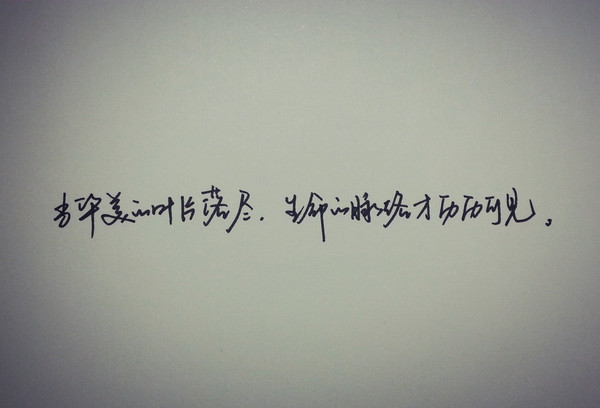 当华美的叶片落尽，生命的脉络才历历可见。